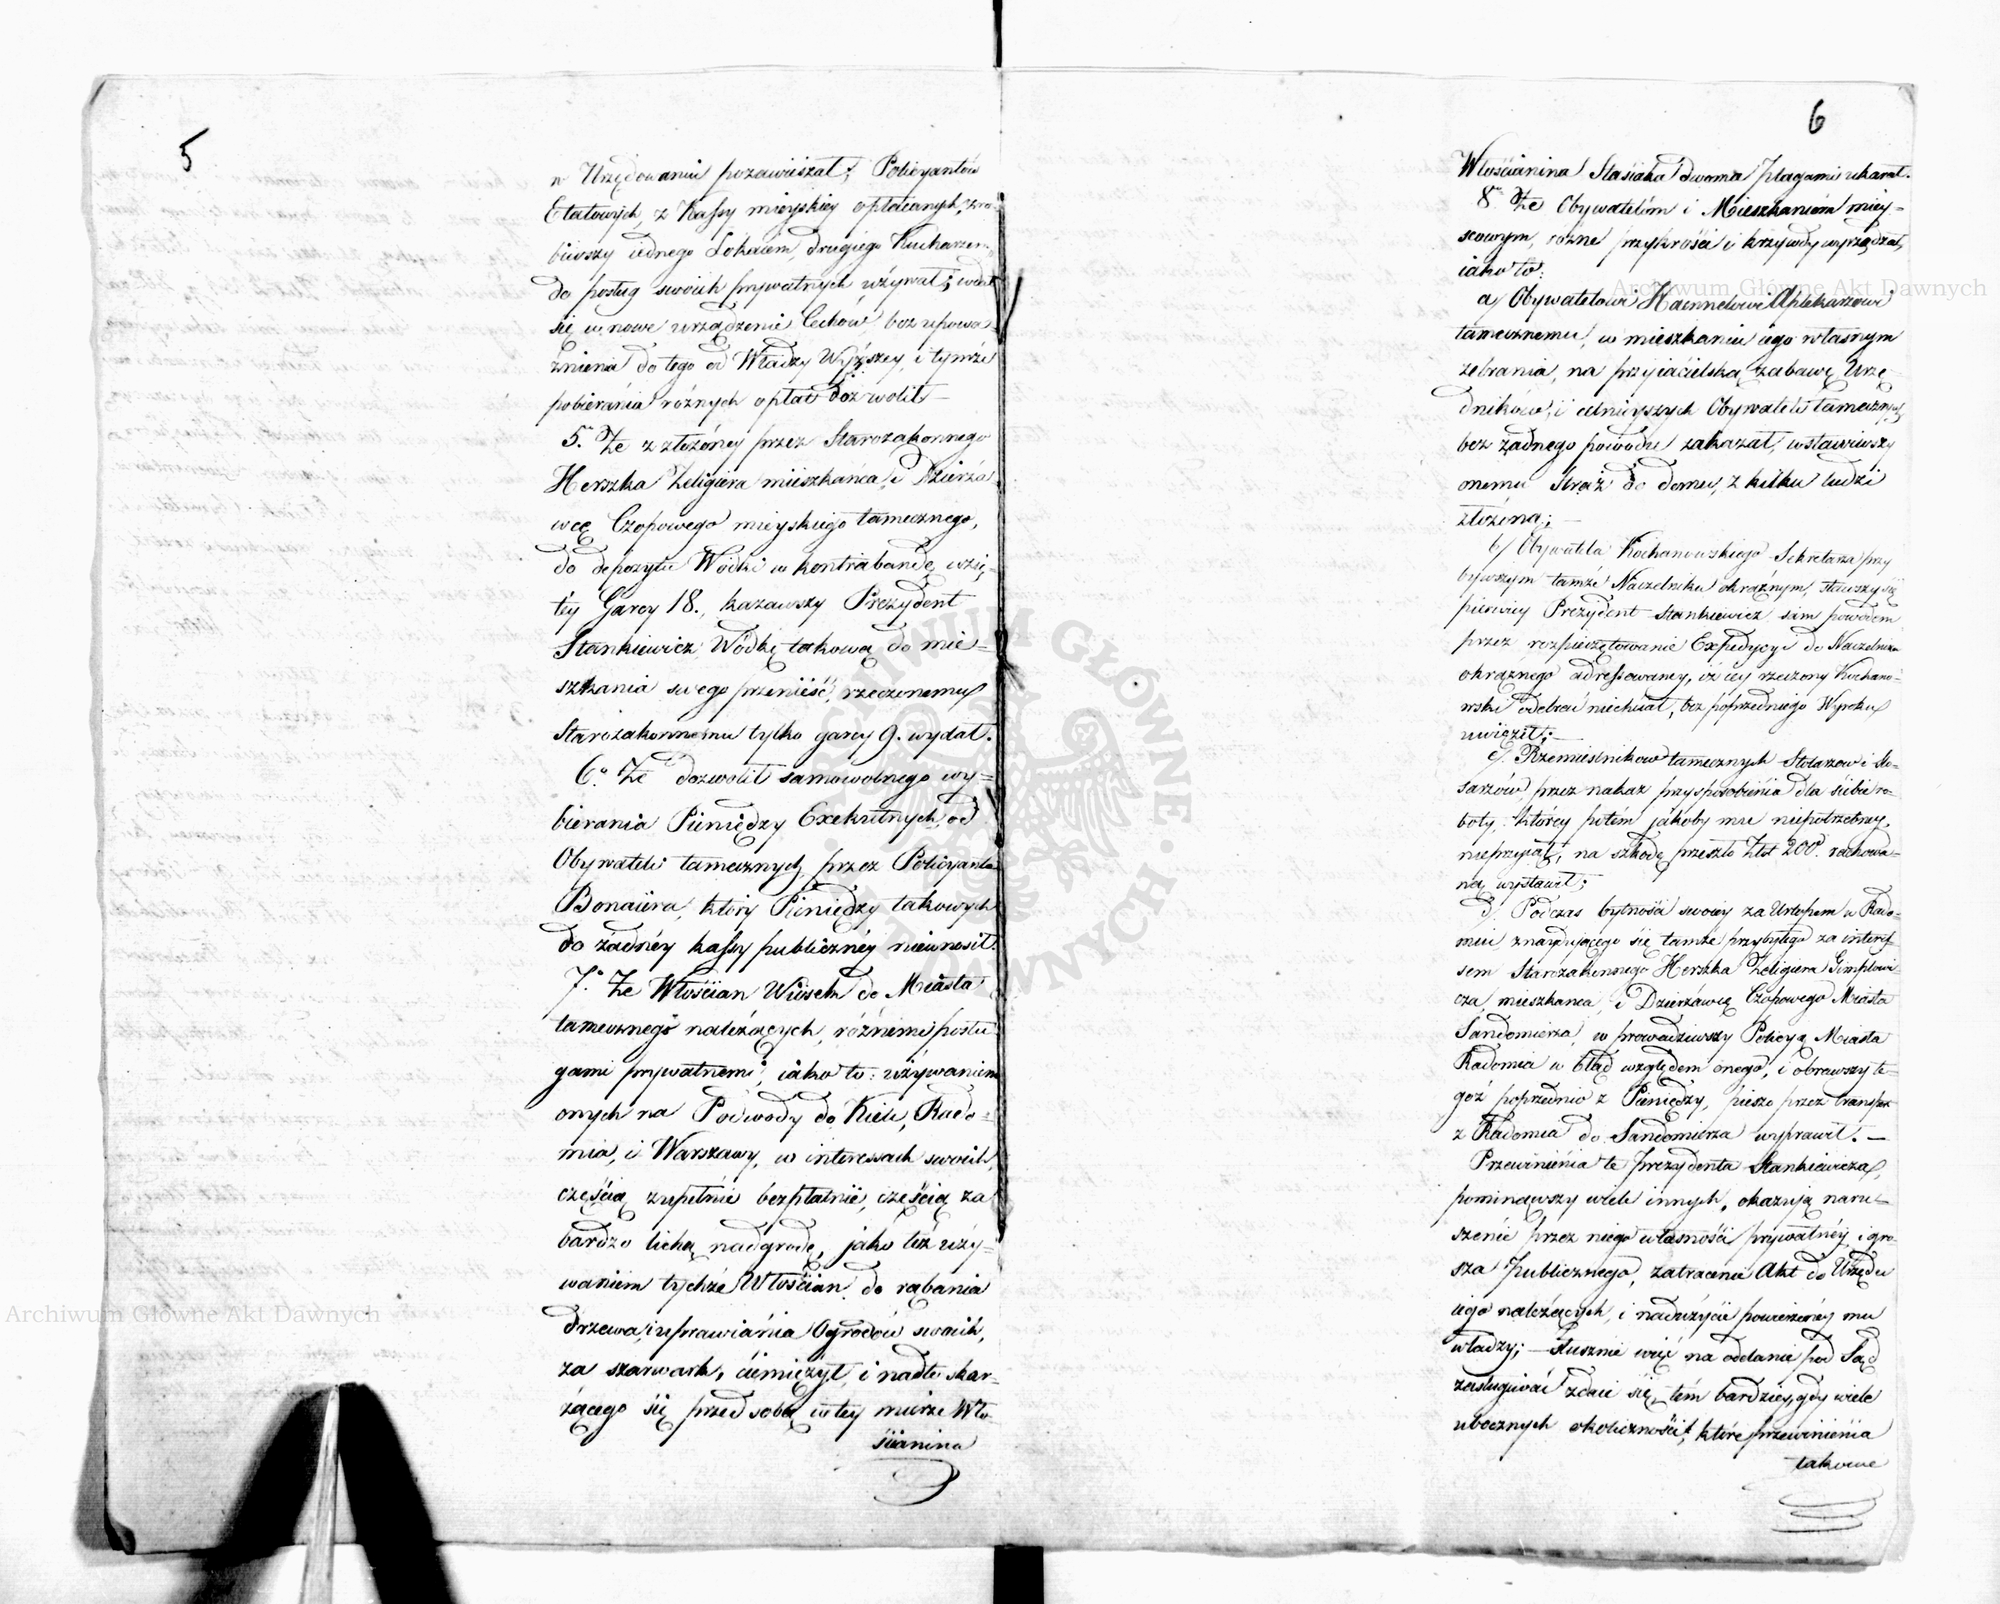 5
w Urzędowaniu pozawieszał; Policyantów
Etatowych, z Kassy mieyskiey opłacanych, zro-
biwszy iednego Lokaiem, drugiego Kucharzem,
do posług swoich prywatnych używał; wdał
się w nowe urządzenie Cechów, bez upowa-
żnienia do tego od Władzy Wyższey, i tymże
pobierania różnych opłat dozwolił —
5. Że z złożoney przez Starozakonnego
Herszka Zeligiera mieszkańca i Dzierża-
wcę Czopowego mieyskiego tamecznego,
do depozytu Wódki w kontrabandę wzię-
tey Garcy 18., kazawszy Prezydent
Stankiewicz Wódkę takową do mie-
szkania swego przenieść, rzeczonemu
Starozakonnemu tylko garcy 9. wydał.
6o Że dozwolił samowolnego wy-
bierania Pieniędzy Exekutnych, od
Obywateli tamecznych, przez Policyanta
Bonaiera, który Pieniędzy takowych
do żadnéy kassy publicznéy niewnosił.
7o Że Włościan Wiosek do Miasta
tamecznego należących, różnemi posłu-
gami prywatnemi, iako to: używaniem
onych na Podwody do Kielc, Rado-
mia, i Warszawy, w interessach swoich,
częścią zupełnie bezpłatnie, częścią za
bardzo lichą nadgrodę, jako też uży-
waniem tychże Włościan do rąbania
drzewa, i uprawiania Ogrodów swoich,
za szarwark, ciemiężył, i nadto skar-
żącego się przed sobą w tey mierze Wło-
ścianina
6
Włościanina Stasiaka dwoma plagami ukarał.
8o Że Obywatelom i Mieszkańcom miey-
scowym, rożne przykrości i krzywdy wyrządzał,
iako to:
a/ Obywatelowi Haennelowi Aptekarzowi
tamecznemu, w mieszkaniu iego własnym
zebrania, na przyiacielską zabawę Urzę-
dników, i celnieyszych Obywateli tamecznych,
bez żadnego powodu zakazał, wstawiwszy
onemu Straż do domu, z kilku ludzi
złożoną; —
b/ Obywatela Kochanowskiego Sekretarza przy
bywszym tamże Naczelniku okrążnym, stawszy się
pierwiey Prezydent Stankiewicz sam powodem
przez rozpieczętowanie Expedycyi do Naczelnika
okrążnego adressowaney, iż iey rzeczony Kochano-
wski odebrać niechciał, bez poprzedniego Wyroku
uwięził; —
c/ Rzemieslnikow tamecznych Stolarzow i Slo-
sarzów, przez nakaz przysposobienia dla siebie ro-
boty, którey potém jakoby mu niepotrzebney,
nieprzyiął, na szkodę przeszło Złł 200. rachowa-
ną wystawił;
d/ Podczas bytności swoiey za Urlopem w Rado-
miu znayduiącego się tamże przybyłego za interes-
sem Starozakonnego Herszka Zeligiera Gimplowi-
cza, mieszkańca, i Dzierżawcę Czopowego Miasta
Sandomierza, wprowadziwszy Policyą Miasta
Radomia w błąd względem onego, i obrawszy te-
goż poprzednio z Pieniędzy, pieszo przez transport
z Radomia do Sandomierza wyprawił. —
Przewinienia te Prezydenta Stankiewicza,
pominąwszy wiele innych, okazuią naru-
szenie przez niego własności prywatnéy, i gro-
sza publicznego, zatracenie Akt do Urzędu
iego należących, i nadużycie powierzonéy mu
władzy; — słusznie więc na oddanie pod Sąd
zasługiwać zdaie się, tém bardziey, gdy wiele
ubocznych okoliczności, które przewinienia
takowe
Archiwum Główne Akt Dawnych
Archiwum Główne Akt Dawnych
ARCHIWUM GŁÓWNE AKT DAWNYCH